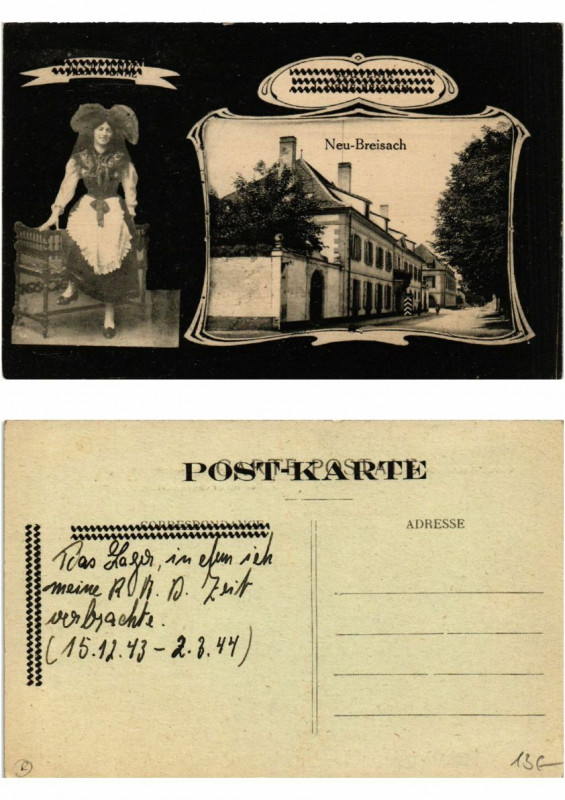 Neu-Breisach
CARTE POSTALE
POST-KARTE
CORRESPONDANCE
ADRESSE
Das Lager, in dem ich
meine R. A. D. Zeit
verbrachte.
(15.12.43 - 2.3.44)
13€